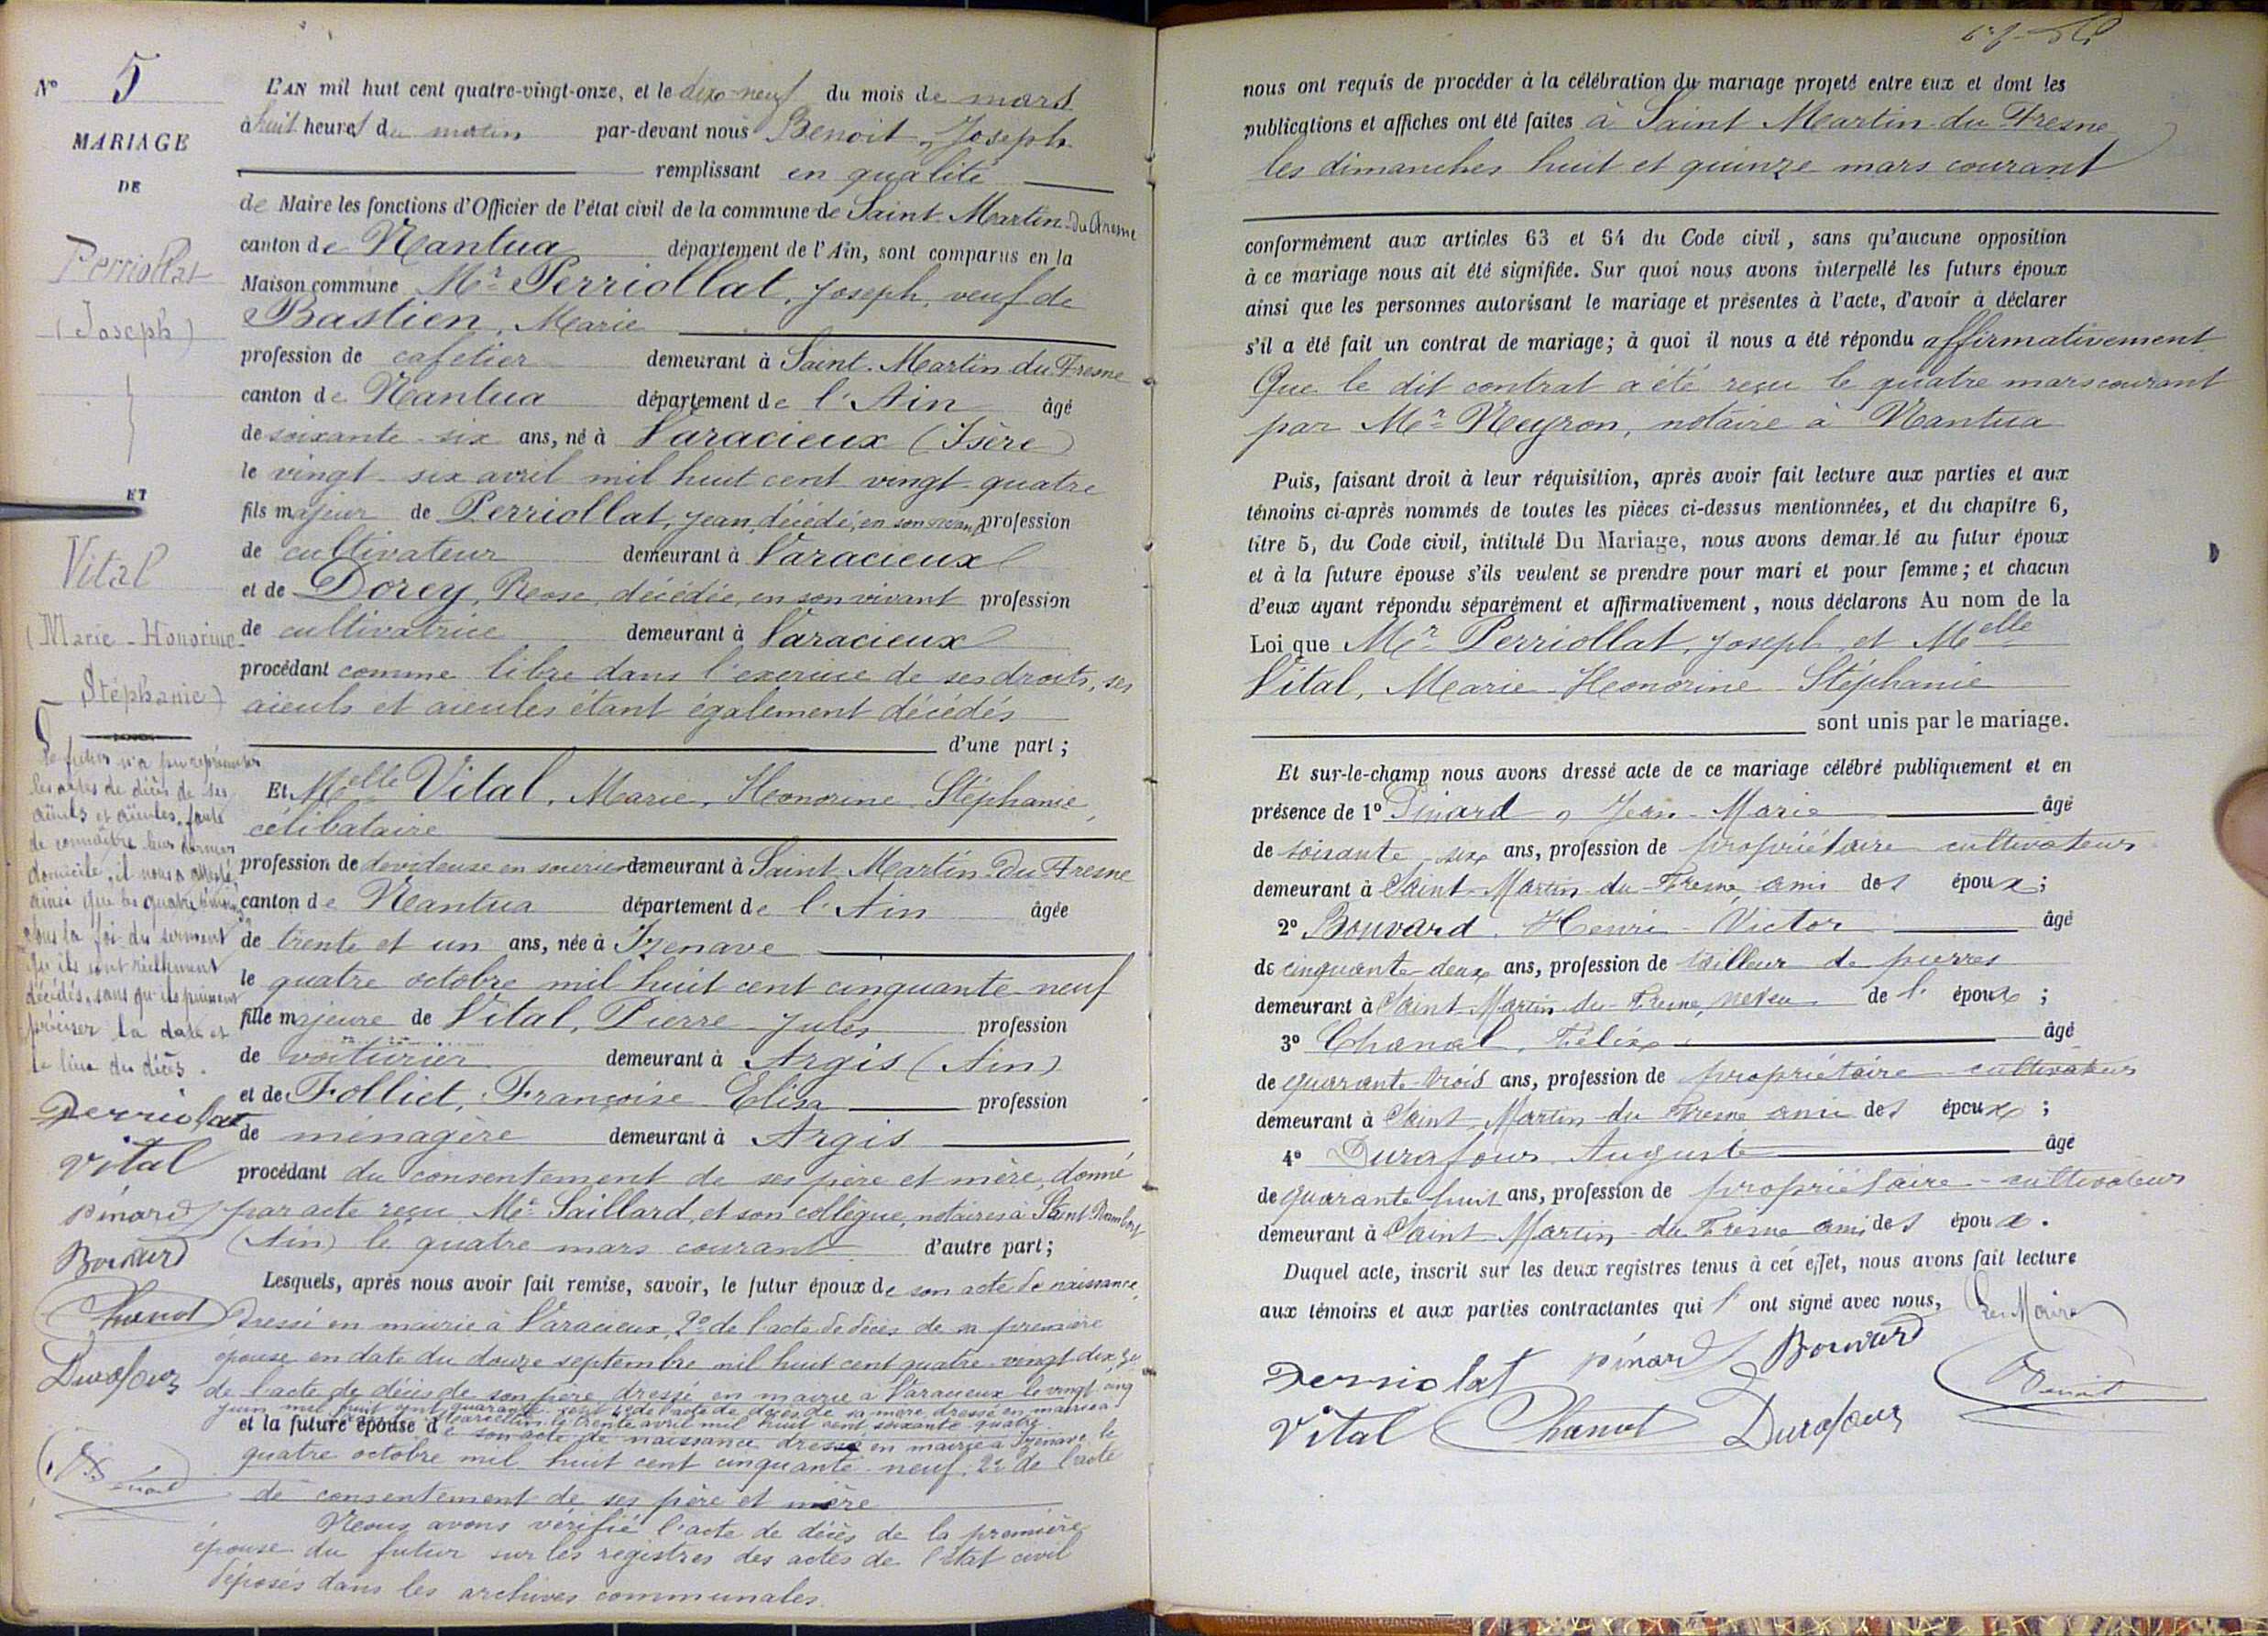 N° 5
MARIAGE
DE
Perriollat
(Joseph)
ET
Vital
(Marie-Honorine-
Stéphanie)
Le futur n'a pu représenter
les actes de décès de ses
aïeuls et aïeules, faute
de connaître leur dernier
domicile, il nous a attesté,
ainsi que les quatre témoins
sous la foi du serment
qu'ils sont réellement
décédés, sans qu'ils puissent
préciser la date et
le lieu des décès.
Perriolat
Vital
pinard
Bouvard
Chanal
Durafour
Benoit
L'AN mil huit cent quatre-vingt-onze, et le dix-neuf du mois de mars
à huit heures du matin par-devant nous Benoit, Joseph
remplissant en qualité
de Maire les fonctions d'Officier de l'état civil de la commune de Saint-Martin-du-Fresne
canton de Nantua département de l'Ain, sont comparus en la
Maison commune Mr Perriollat, Joseph, veuf de
Bastien, Marie
profession de cafetier demeurant à Saint-Martin-du-Fresne
canton de Nantua département de l'Ain âgé
de soixante-six ans, né à Varacieux (Isère)
le vingt-six avril mil huit cent vingt-quatre
fils majeur de Perriollat, Jean, décédé, en son vivant profession
de cultivateur demeurant à Varacieux
et de Dorey, Rose, décédée, en son vivant profession
de cultivatrice demeurant à Varacieux
procédant comme libre dans l'exercice de ses droits, ses
aïeuls et aïeules étant également décédés
d'une part;
Et Melle Vital, Marie, Honorine, Stéphanie,
célibataire
profession de dévideuse en soieries demeurant à Saint-Martin-Du-Fresne
canton de Nantua département de l'Ain âgée
de trente et un ans, née à Izenave
le quatre octobre mil huit cent cinquante-neuf
fille majeure de Vital, Pierre-Jules profession
de voiturier demeurant à Argis (Ain)
et de Folliet, Françoise-Elisa profession
de ménagère demeurant à Argis
procédant du consentement de ses père et mère, donné
par acte reçu Me Saillard, et son collègue, notaires à Saint-Rambert
(Ain) le quatre mars courant d'autre part;
Lesquels, après nous avoir fait remise, savoir, le futur époux de son acte de naissance,
dressé en mairie à Varacieux, 2° de l'acte de décès de sa première
épouse en date du douze septembre mil huit cent quatre-vingt-dix, 3°
de l'acte de décès de son père dressé en mairie à Varacieux le vingt-cinq
juin mil huit cent quarante 4° de l'acte de décès de sa mère dressé en mairie à
Marcellin le trente avril mil huit cent soixante quatre
et la future épouse de son acte de naissance dressé en mairie à Izenave le
quatre octobre mil huit cent cinquante-neuf, 2° de l'acte
de consentement de ses père et mère
Nous avons vérifié l'acte de décès de la première
épouse du futur sur les registres des actes de l'Etat civil
déposés dans les archives communales.
nous ont requis de procéder à la célébration du mariage projeté entre eux et dont les
publications et affiches ont été faites à Saint-Martin-du-Fresne
les dimanches huit et quinze mars courant
conformément aux articles 63 et 64 du Code civil, sans qu'aucune opposition
à ce mariage nous ait été signifiée. Sur quoi nous avons interpellé les futurs époux
ainsi que les personnes autorisant le mariage et présentes à l'acte, d'avoir à déclarer
s'il a été fait un contrat de mariage; à quoi il nous a été répondu affirmativement
Que le dit contrat a été reçu le quatre mars courant
par Me Neyron, notaire à Nantua
Puis, faisant droit à leur réquisition, après avoir fait lecture aux parties et aux
témoins ci-après nommés de toutes les pièces ci-dessus mentionnées, et du chapitre 6,
titre 5, du Code civil, intitulé Du Mariage, nous avons demandé au futur époux
et à la future épouse s'ils veulent se prendre pour mari et pour femme; et chacun
d'eux ayant répondu séparément et affirmativement, nous déclarons Au nom de la
Loi que Mr Perriollat, Joseph et Melle
Vital, Marie-Honorine-Stéphanie
sont unis par le mariage.
Et sur-le-champ nous avons dressé acte de ce mariage célébré publiquement et en
présence de 1° Pinard, Jean-Marie âgé
de soixante-six ans, profession de propriétaire cultivateur
demeurant à Saint-Martin-du-Fresne, ami des époux;
2° Bouvard, Henri-Victor âgé
de cinquante-deux ans, profession de tailleur de pierres
demeurant à Saint-Martin-du-Fresne, neveu de l'époux;
3° Chanal, Félix âgé
de quarante-trois ans, profession de propriétaire-cultivateur
demeurant à Saint-Martin-du-Fresne ami des époux;
4° Durafour Auguste âgé
de quarante-huit ans, profession de propriétaire-cultivateur
demeurant à Saint-Martin-du-Fresne ami des époux.
Duquel acte, inscrit sur les deux registres tenus à cet effet, nous avons fait lecture
aux témoins et aux parties contractantes qui l'ont signé avec nous, Le Maire
Perriolat pinard Bouvard
Benoit
Vital Chanal Durafour